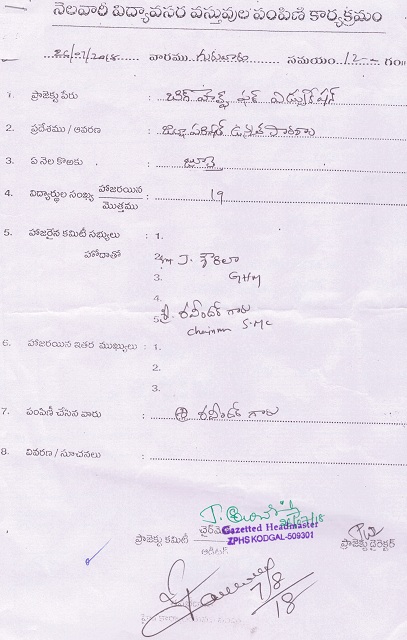 నెలవారీ విద్యావసర వస్తువుల పంపిణి కార్యక్రమం
26/07/2018 వారము గురువారం సమయం 12 - గం
1. ప్రాజెక్టు పేరు :
2. ప్రదేశము / ఆవరణ : జిల్లా పరిషత్ ఉన్నత పాఠశాల
3. ఏ నెల కొఱకు : జూలై
4. విద్యార్థుల సంఖ్య హాజరయిన / మొత్తము : 19
5. హాజరైన కమిటీ సభ్యులు : 1.
హోదాతో 2. J.
3. GHM
4.
5. శ్రీ రవీందర్ గారు
Chairman S.M.C
6. హాజరయిన ఇతర ముఖ్యులు : 1.
2.
3.
7. పంపిణీ చేసిన వారు : రవీందర్ గారు
8. వివరణ / సూచనలు :
26/07/18
Gazetted Headmaster
ప్రాజెక్టు కమిటీ ZPHS KODGAL-509301 ప్రాజెక్టు డైరెక్టర్
ఆడిటర్
7/8/18